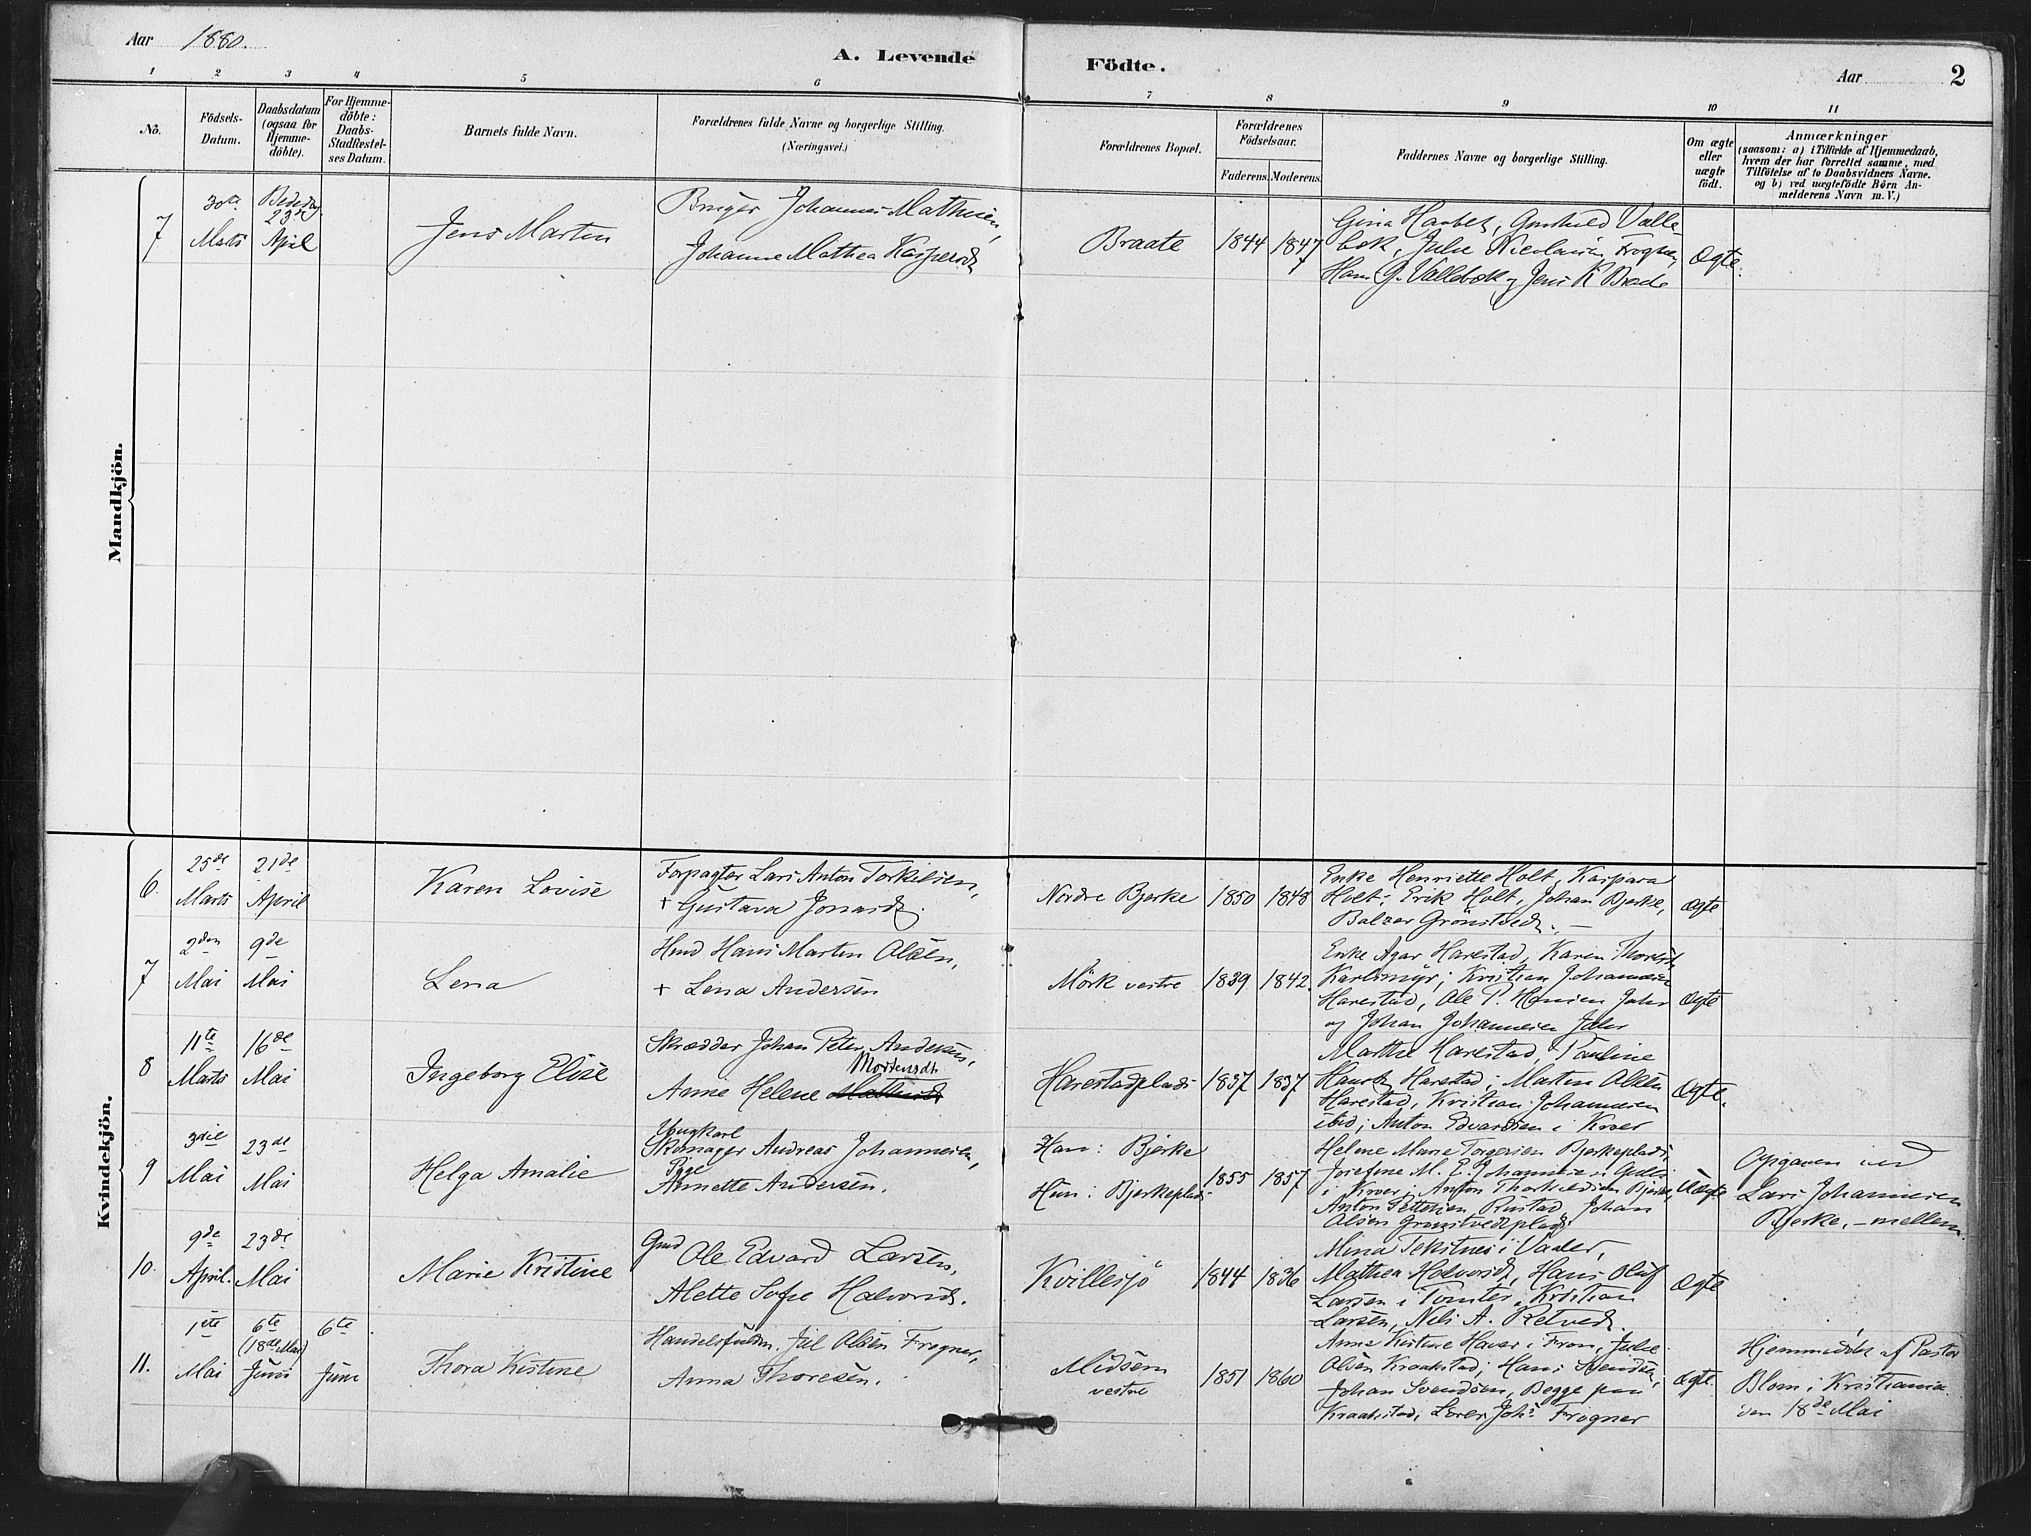 Aar 1880.
A. Levende Födte.
Aar
2
1 2 3 4 5 6 7 8 9 10 11
No.
Födsels-
Datum.
Daabsdatum
(ogsaa for
Hjemme-
döbte).
For Hjemme-
döbte:
Daabs-
Stadfestel-
ses Datum.
Barnets fulde Navn.
Forældrenes fulde Navne og borgerlige Stilling.
(Næringsvei.)
Forældrenes Bopæl.
Forældrenes
Födselsaar.
Faderens. Moderens.
Faddernes Navne og borgerlige Stilling.
Om ægte
eller
uægte
födt.
Anmærkninger
(saasom: a) i Tilfælde af Hjemmedaab,
hvem der har forrettet samme, med
Tilföielse af to Daabsvidners Navne.
og b) ved uægtefödte Börn An-
melderens Navn m.V.)
Mandkjön.
7
30te
Marts
Bededag
23de
April
Jens Martin
Bruger Johannes Mathisen,
Johanne Mathea Kaspersd.
Braate
1844
1847
Gina Haabet, Gunhild Valle-
bek, Julie Nicolaisen Frogner,
Hans G. Vallebek og Jens K Braate
Ægte.
Kvindekjön.
6
25de
Marts
21de
April
Karen Lovise
Forpagter Lars Anton Torkilsen,
+ Gustava Jonasd.
Nordre Bjerke
1850
1848
Enke Henriette Holt, Kaspara
Holt; Erik Holt, Johan Bjerke,
Balzer Grönstvedt. —
Ægte
7
2den
Mai
9de
Mai
Lena
Hmd Hans Martin Olsen,
+ Lena Andersen
Mörk vestre
1839
1842.
Enke Agar Harestad, Karen Thoresd.
Karlsmyr; Kristian Johannesen
Harestad, Ole T. Hansen Jahr
og Johan Johannesen Jahr
Ægte
8
11te
Marts
16de
Mai
Ingeborg Elise
Skrædder Johan Peter Andersen,
Mortensdt.
Anne Helene
Harestadplads
1837
1837
Marthe Harestad, Pauline
Harestad; Martin Olsen
Harestad, Kristian Johannesen
ibid; Anton Edvardsen i Kroer
Ægte.
9
3die
Mai
23de
Mai
Helga Amalie
Ungkarl
Skomager Andreas Johannesen,
Pige
Annette Andersen.
Han: Bjerke
Hun: Bjerkeplads
1855
1857
Helene Marie Torgersen Bjerkeplads,
Josefine M. E. Johannesen
i Kroer; Anton Thorkildsen Bjerke,
Anton Pettersen Rustad, Johan
Olsen Grönstvedsplads
Uægte
Opgaven ved
Lars Johannesen
Bjerke, – mellem.
10.
9de
April.
23de
Mai
Marie Kristine
Gmd Ole Edvard Larsen,
Alette Sofie Halvorsd.
Kvillesjö
1844
1836
Mina Teksnes i Vaaler,
Mathea Halvorsd, Hans Oluf
Larsen i Tomter, Kristian
Larsen, Nils A. Retvedt.
Ægte
11.
1ste
Mai
6te
(18de Mai)
Juni
6te
Juni
Thora Kistine
Handelsfuldm. Jul Olsen Frogner,
Anna Thoresen.
Midsem
vestre
1851
1860
Anne Kistine Haver i Fron, Julie
Olsen Kraakstad; Hans Svendsen,
Johan Svendsen, Begge paa
Kraakstad, Lærer Johs. Frogner
Ægte.
Hjemmedöbt af Pastor
Blom i Kristiania
den 18de Mai